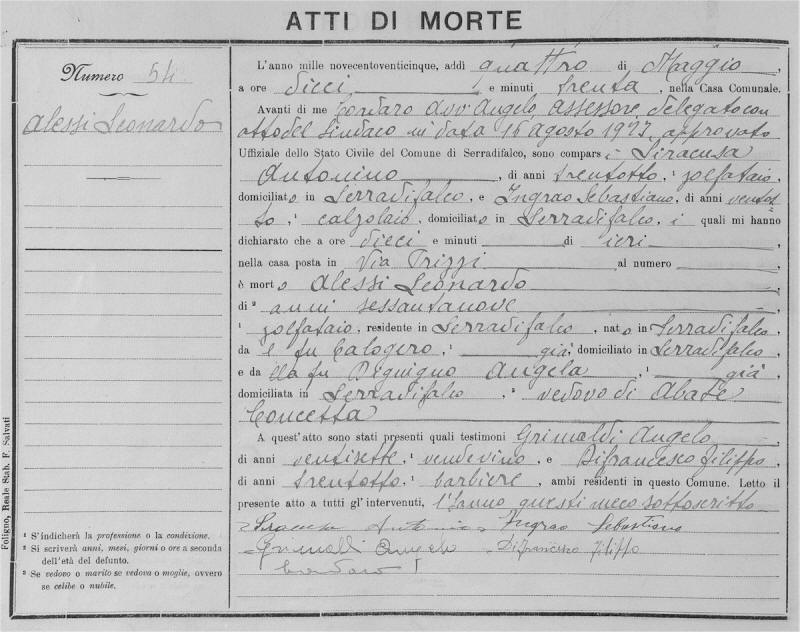 ATTI DI MORTE
Numero 54
Alessi Leonardo
L'anno mille novecentoventicinque, addì quattro di Maggio,
a ore dieci e minuti trenta, nella Casa Comunale.
Avanti di me Cordaro avv Angelo assessore delegato con
atto del Sindaco in data 16 agosto 1923, approvato
Uffiziale dello Stato Civile del Comune di Serradifalco, sono comparsi Siracusa
Antonino, di anni trentotto, ¹ zolfataio,
domiciliato in Serradifalco, e Ingrao Sebastiano, di anni ventot=
to, ¹ calzolaio, domiciliato in Serradifalco, i quali mi hanno
dichiarato che a ore dieci e minuti di ieri,
nella casa posta in Via Trizzi al numero ,
è morto Alessi Leonardo
di ² anni sessantanove
¹ zolfataio, residente in Serradifalco, nato in Serradifalco
da l fu Calogero, ¹ già domiciliato in Serradifalco
e da lla fu Angela, ¹ già
domiciliata in Serradifalco, ³ vedovo di Abate
Concetta
A quest'atto sono stati presenti quali testimoni Grimaldi Angelo,
di anni ventisette, ¹ vendevino, e Difrancesco Filippo,
di anni trentotto, ¹ barbiere, ambi residenti in questo Comune. Letto il
presente atto a tutti gl'intervenuti, l'hanno questi meco sottoscritto
Siracusa Antonino Ingrao Sebastiano
Grimaldi Angelo Difrancesco Filippo
Cordaro
¹ S'indicherà la professione o la condizione.
² Si scriverà anni, mesi, giorni o ore a seconda
dell'età del defunto.
³ Se vedovo o marito se vedova o moglie, ovvero
se celibe o nubile.
Foligno, Reale Stab. F. Salvati